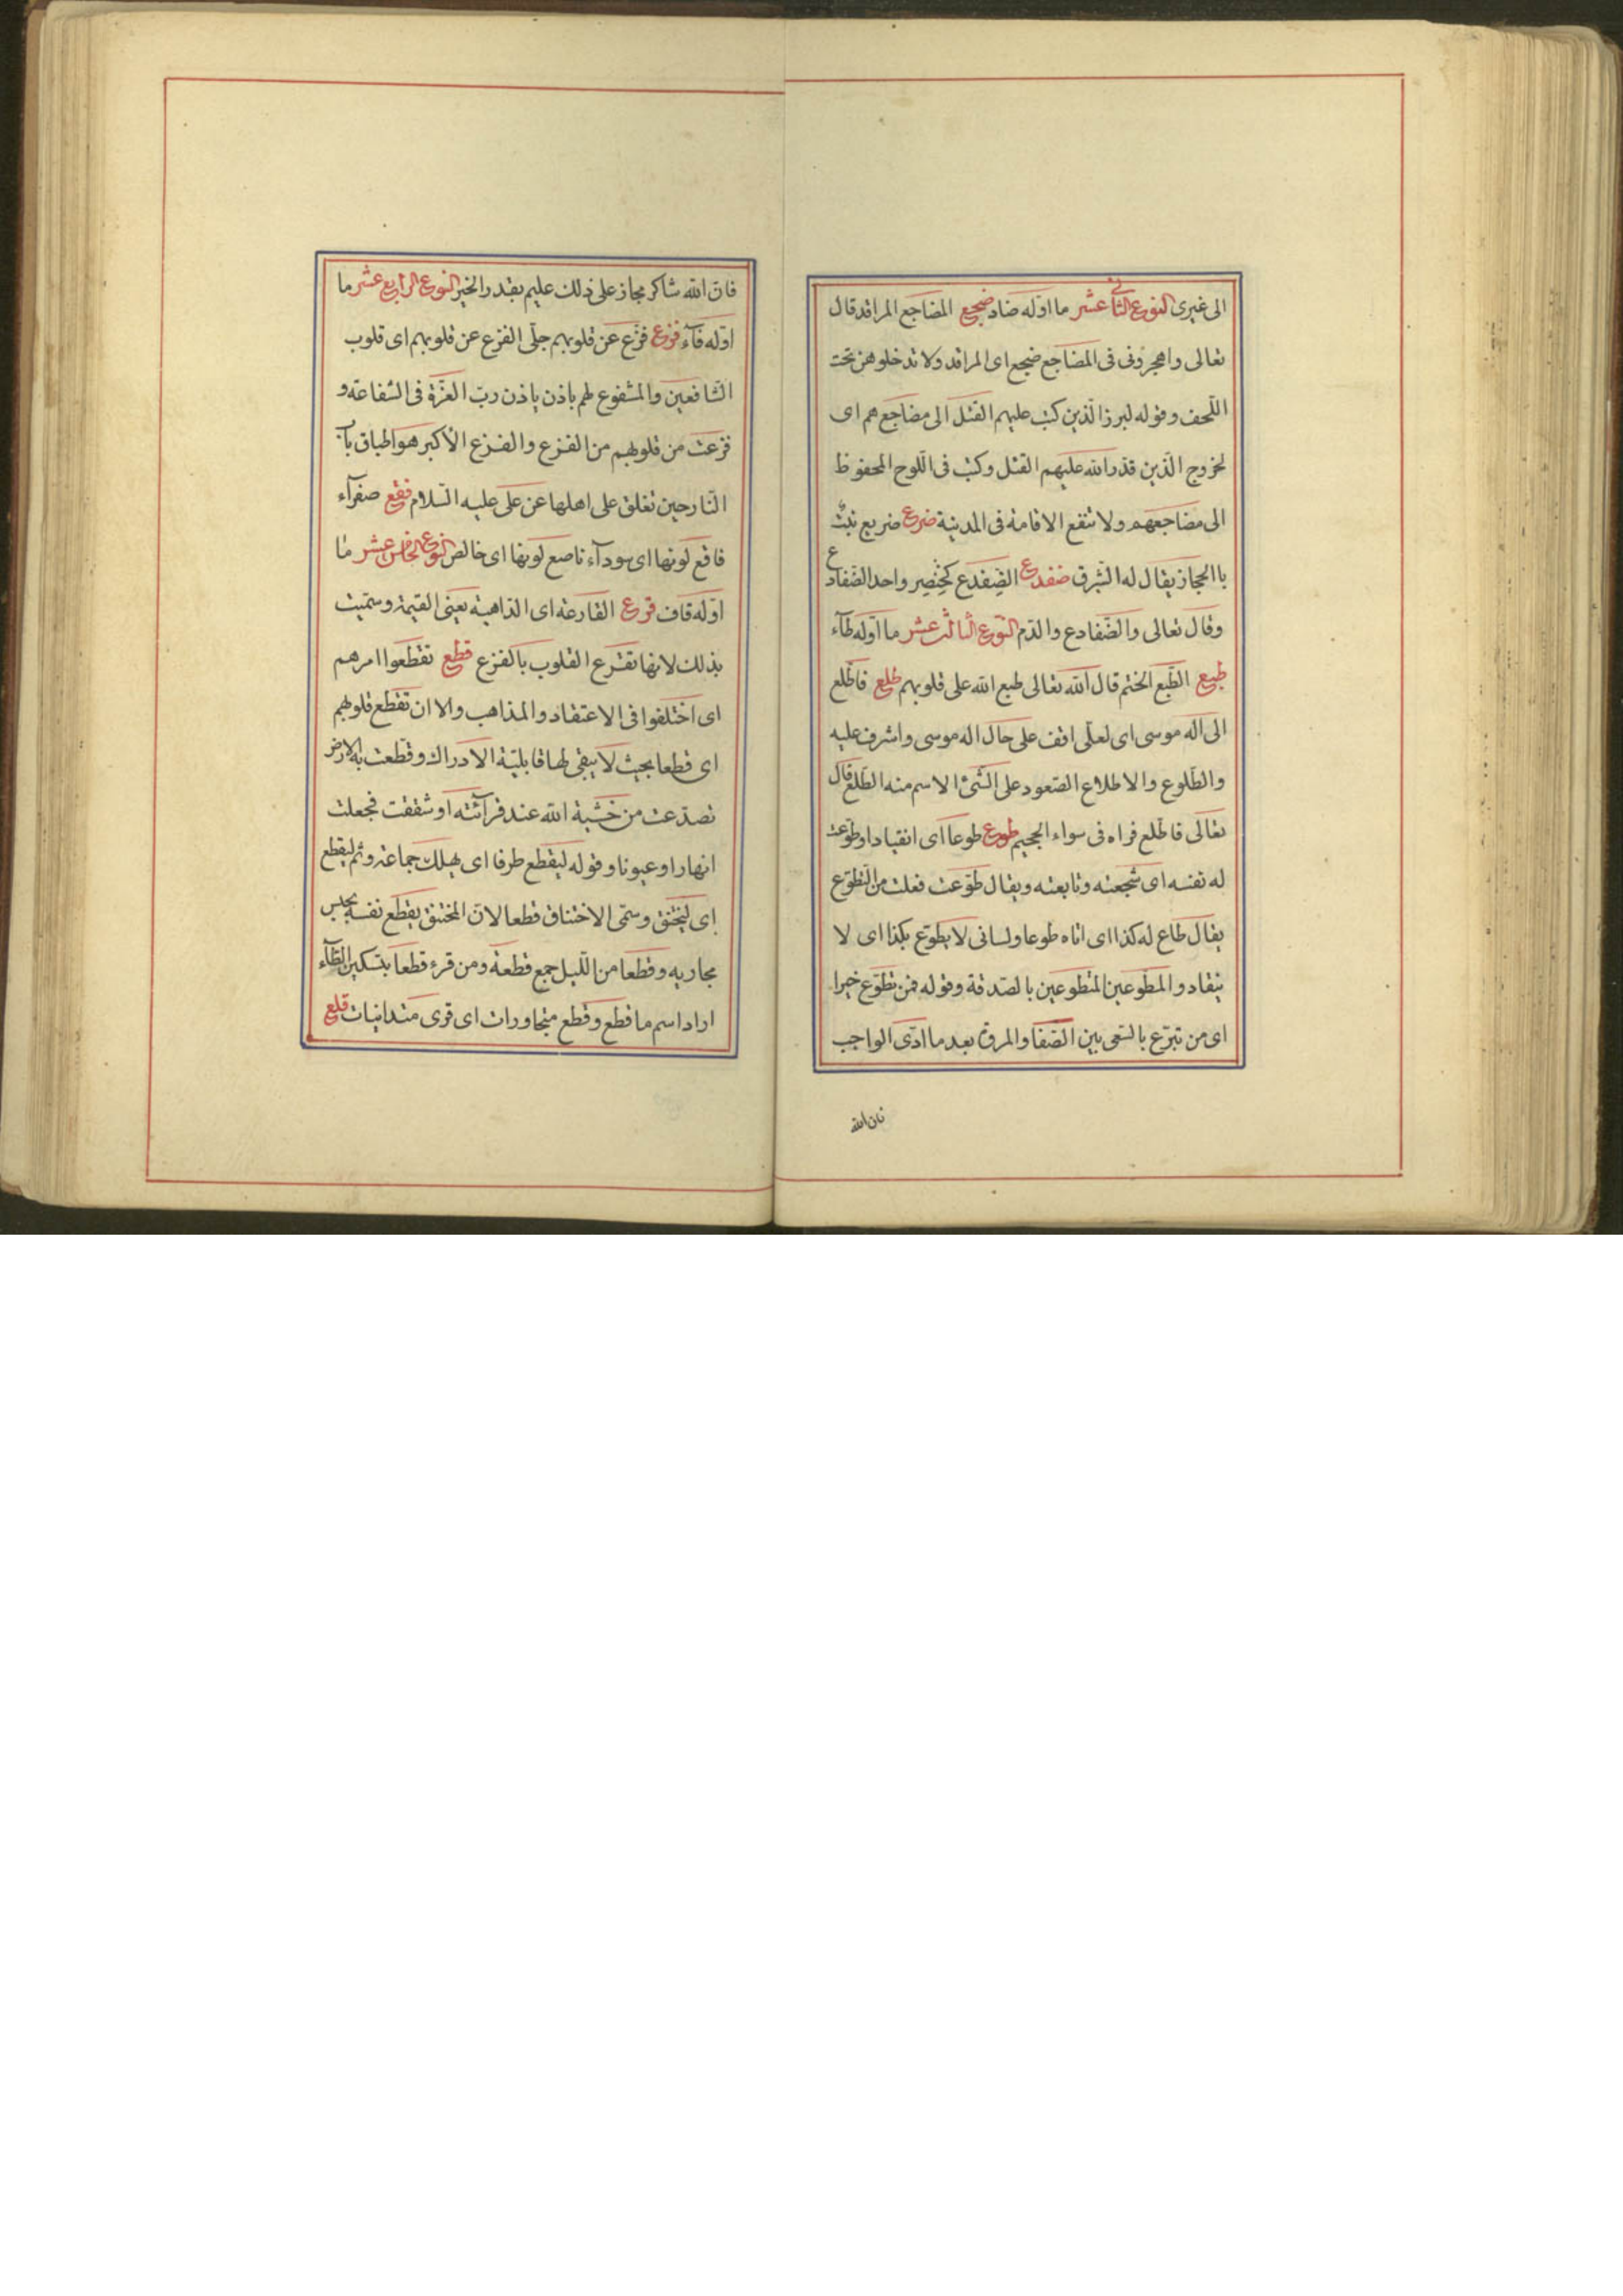 الى غيرى النوع الثانى عشر ما اوله ضاد ضجع المضاجع المراقد قال
تعالى واهجروفى فى المضاجع ضجع اى المراقد ولا تدخلوهن تحت
اللّحف وقوله لبرز الّذين كتب عليهم القتل الى مضاجعهم اى
لخروج الّذين قدّر الله عليهم القتل وكتب فى اللّوح المحفوظ
الى مضاجعهم ولا تنفع الاقامة فى المدينة ضرع ضريع نبتٌ
باالحجاز يقال له الشّبرق ضفدع الضّفدع كخِنصِر واحد الضّفادع
وقال تعالى والضّفادع والدّم النّوع الثالث عشر ما اوّله طآء
طبع الطّبع الختم قال الله تعالى طبع الله على قلوبهم طلع فاطّلع
الى اله موسى اى لعلّى اقف على حال اله موسى واشرف عليه
والطّلوع والاطلاع الصّعود على الشّئ الاسم منه الطّلع قال
تعالى فاطّلع فراه فى سواء الجحيم طوع طوعا اى انقيادا وطوّعت
له نفسه اى شجعته وتابعته ويقال طوّعت فعلت من التّطوّع
يقال طاع له كذا اى اتاه طوعا ولسانى لا يطوع بكذا اى لا
ينقاد والمطّوعين المتطوعين بالصّدقة وقوله فمن تطوّع خيرا
اى من تبرّع بالسّعى بين الصّفا والمروة بعد ما ادّى الواجب
فان الله
فانّ الله شاكر مجاز على ذلك عليم بقدر الخير النوع الرابع عشر ما
اوّله فآء فزع فزّع عن قلوبهم جلّى الفزع عن قلوبهم اى قلوب
الشّافعين والمشفوع لهم باذن ياذن ربّ العزّة فى الشفاعة و
فزعت من قلوبهم من الفزع والفزع الأكبر هو اطباق باب
النّار حين تغلق على اهلها عن على عليه السّلام فقع صفرآء
فاقع لونها اى سودآء ناصع لونها اى خالص النوع الخامس عشر ما
اوّله قاف قرع القارعة اى الدّاهية يعنى القيمة وسمّيت
بذلك لانها تقرع القلوب بالفزع قطع تقطّعوا امرهم
اى اختلفوا فى الاعتقاد والمذاهب والا ان تقطّع قلوبهم
اى قطعا بحيث لا يبقى لها قابليّة الادراك وقطّعت به الارض
تصدّعت من خشية الله عند قرآئته او شققت فجعلت
انهارا وعيونا وقوله ليقطع طرفا اى يهلك جماعة وثم ليقطع
اى ليختنق وسمّى الاختناق قطعا لانّ المختنق يقطع نفسه بحبس
مجاريه وقطعا من اللّيل جمع قطعة ومن قرء قطعا بتسكين الطّآء
اراد اسم ما قطع وقطع متجاورات اى قرى متدانيات قلع